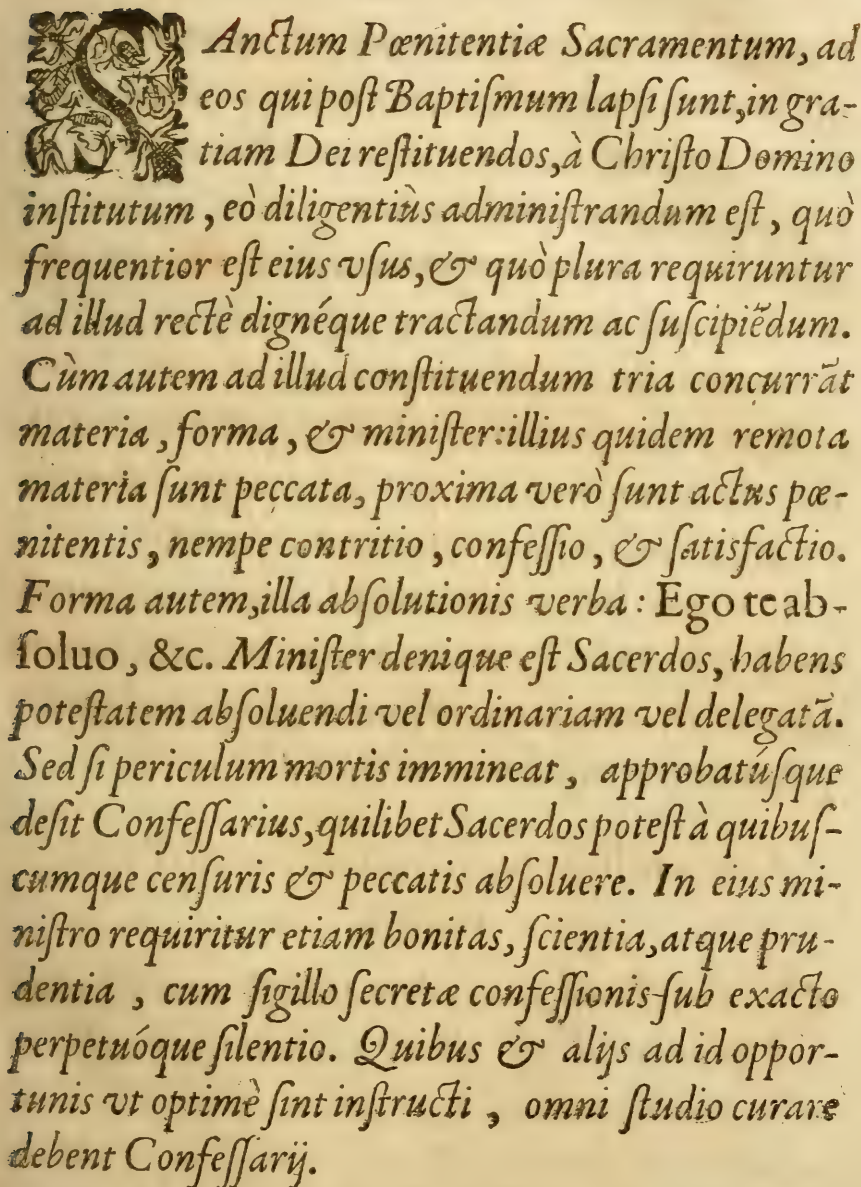 SAnctum Pœnitentiæ Sacramentum, ad
eos qui poſt Baptiſmum lapſi ſunt, in gra-
tiam Dei reſtituendos, à Chriſto Domino
inſtitutum, eò diligentiùs adminiſtrandum eſt, quò
frequentior eſt eius vſus, & quò plura requiruntur
ad illud rectè dignéque tractandum ac ſuſcipiēdum.
Cùm autem ad illud conſtituendum tria concurrāt
materia, forma, & miniſter: illius quidem remota
materia ſunt peccata, proxima verò ſunt actus pœ-
nitentis, nempe contritio, confeſſio, & ſatisfactio.
Forma autem, illa abſolutionis verba: Ego te ab-
ſoluo, &c. Miniſter denique eſt Sacerdos, habens
poteſtatem abſoluendi vel ordinariam vel delegatā.
Sed ſi periculum mortis immineat, approbatúſque
deſit Confeſſarius, quilibet Sacerdos poteſt à quibuſ-
cumque cenſuris & peccatis abſoluere. In eius mi-
niſtro requiritur etiam bonitas, ſcientia, atque pru-
dentia, cum ſigillo ſecretæ confeſſionis ſub exacto
perpetuóque ſilentio. Quibus & alijs ad id oppor-
tunis vt optimè ſint inſtructi, omni ſtudio curare
debent Confeſſarij.